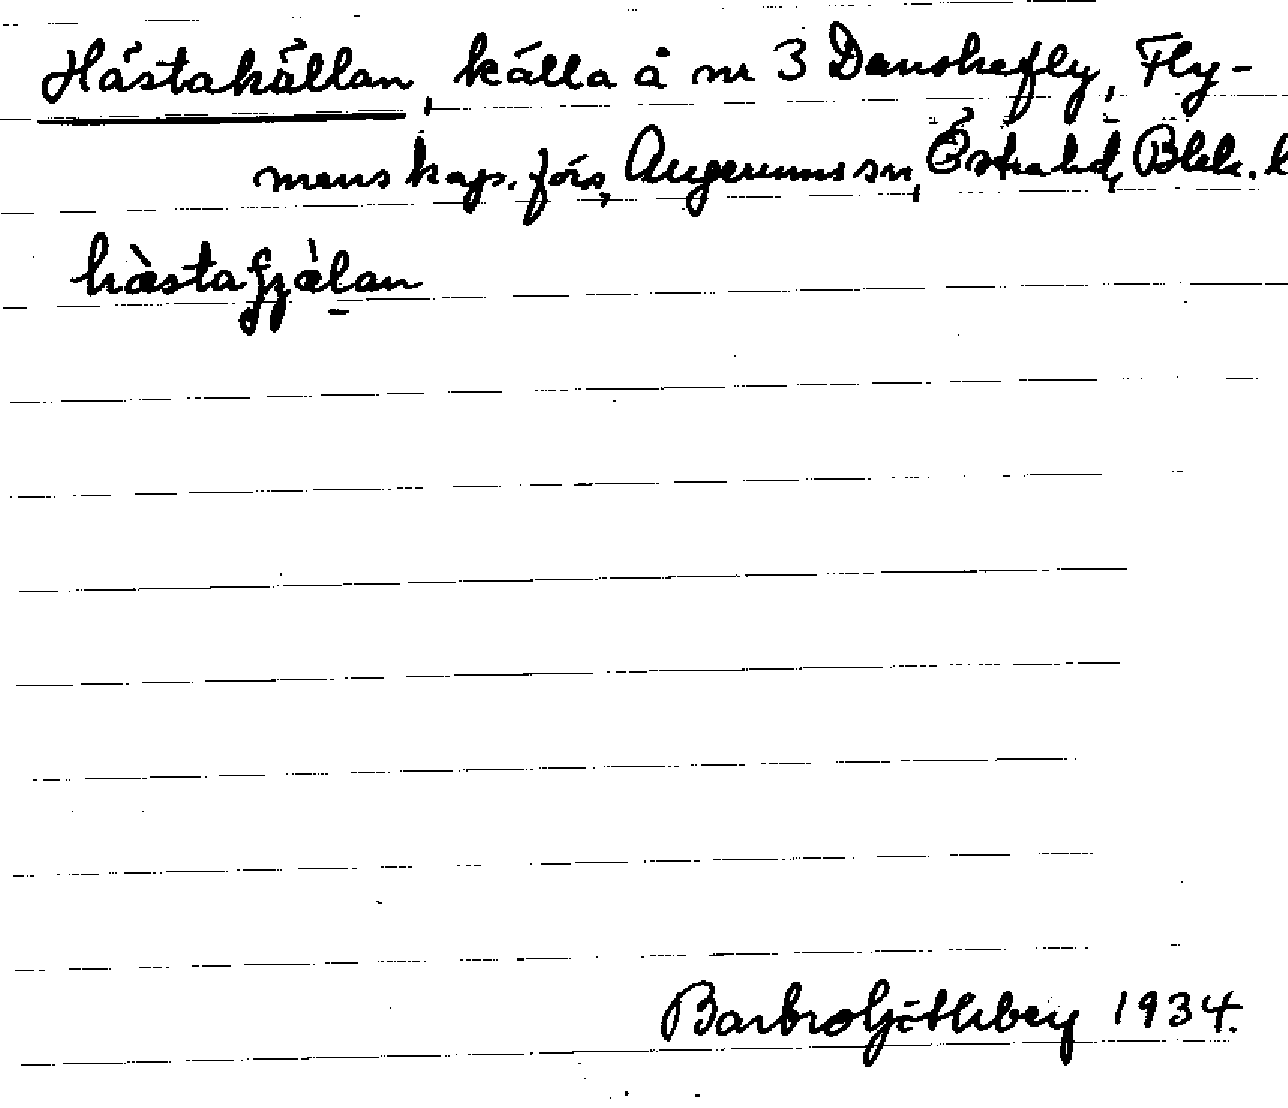 Hästakällan, källa å nr 3 Danskefly, Fly-
mens kap. förs, Augerums sn, Östra hd, Blek. l
hàstafjä̀lan
Barbro Götheberg 1934.